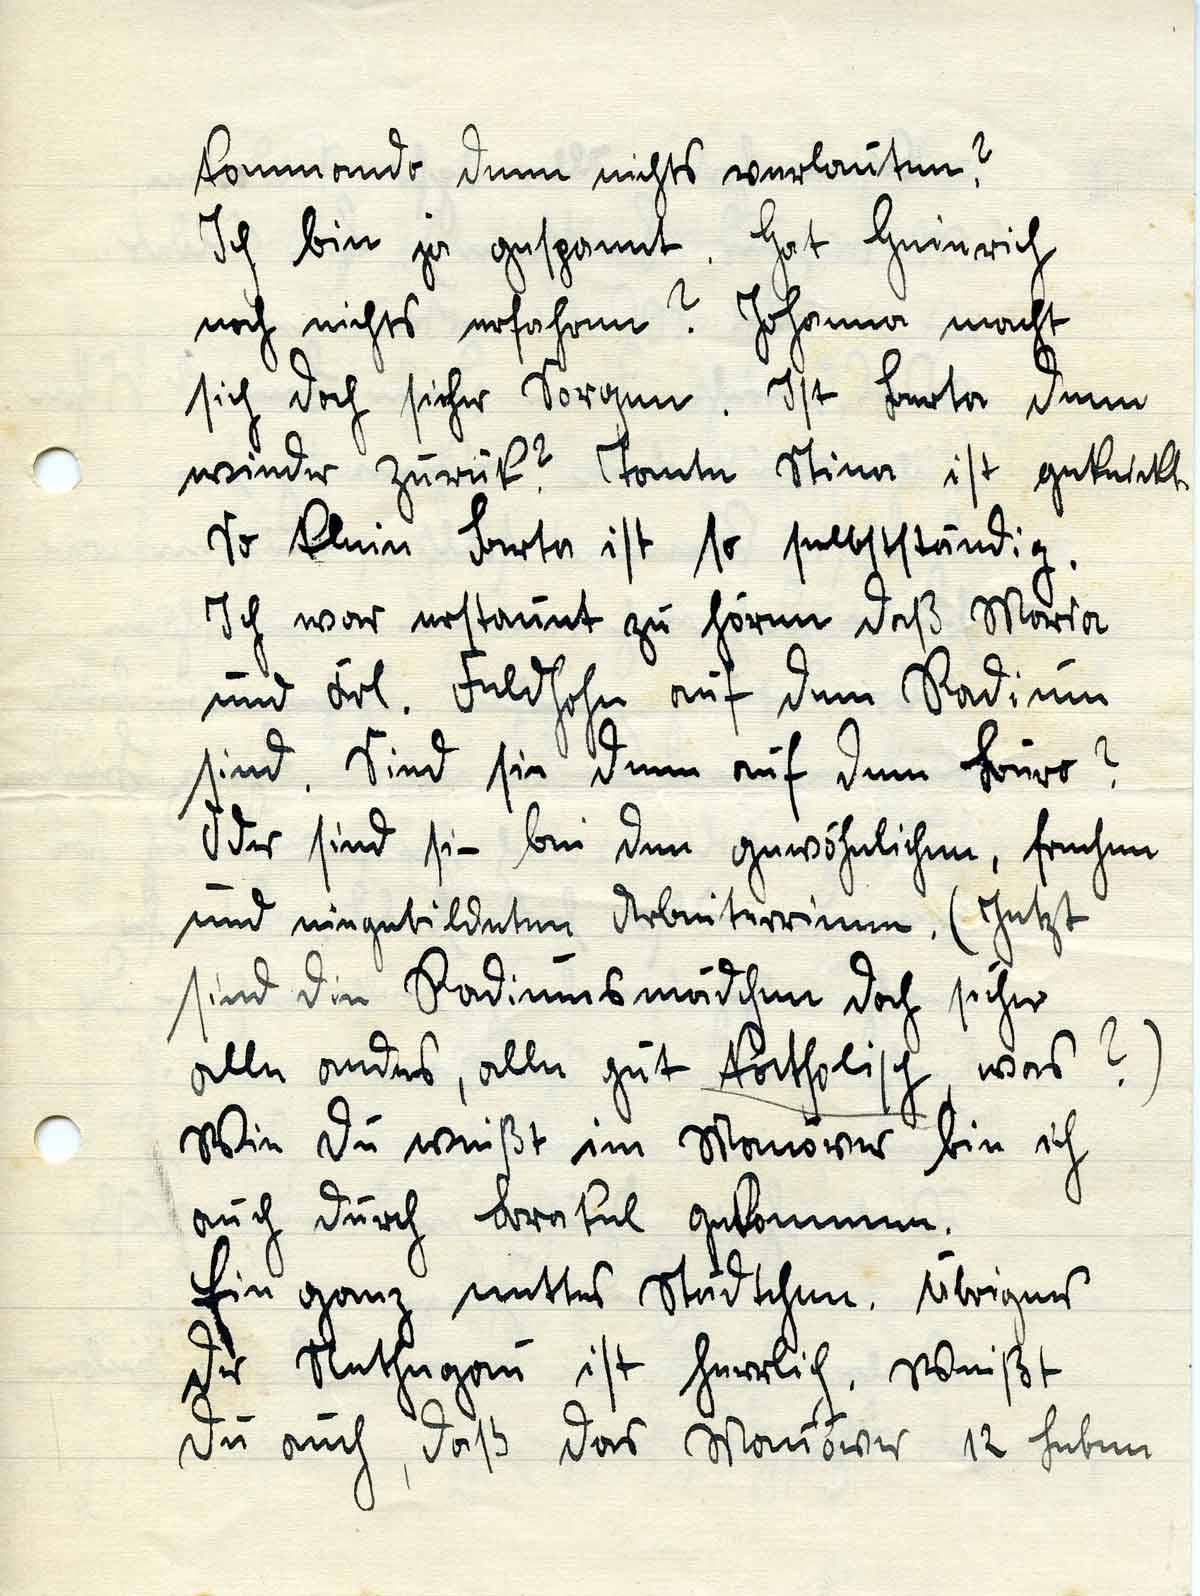 Kommando denn nichts verlauten?
Ich bin ja gespannt. Hat Heinrich
noch nichts erfahren? Johanna macht
sich doch sicher Sorgen. Ist Berta denn
wieder zurük? Tante Stina ist geknickt.
So klein Berta ist so selbstständig.
Ich war erstaunt zu hören daß Maria
und Frl. Feldhohe auf dem Radium
sind. Sind sie denn auf dem Büro?
Oder sind sie bei den gewöhnlichen, frechen
und eingebildeten Arbeiterrinnen. (Jetzt
sind die Radiumsmädchen doch sicher
alle anders, alle gut katholisch, was?)
Wie Du weißt im Manöver bin ich
auch durch Brakel gekommen.
Ein ganz nettes Städtchen. Übrigens
der Nethegau ist herrlich. Weißt
Du auch, daß das Manöver 12 Leben